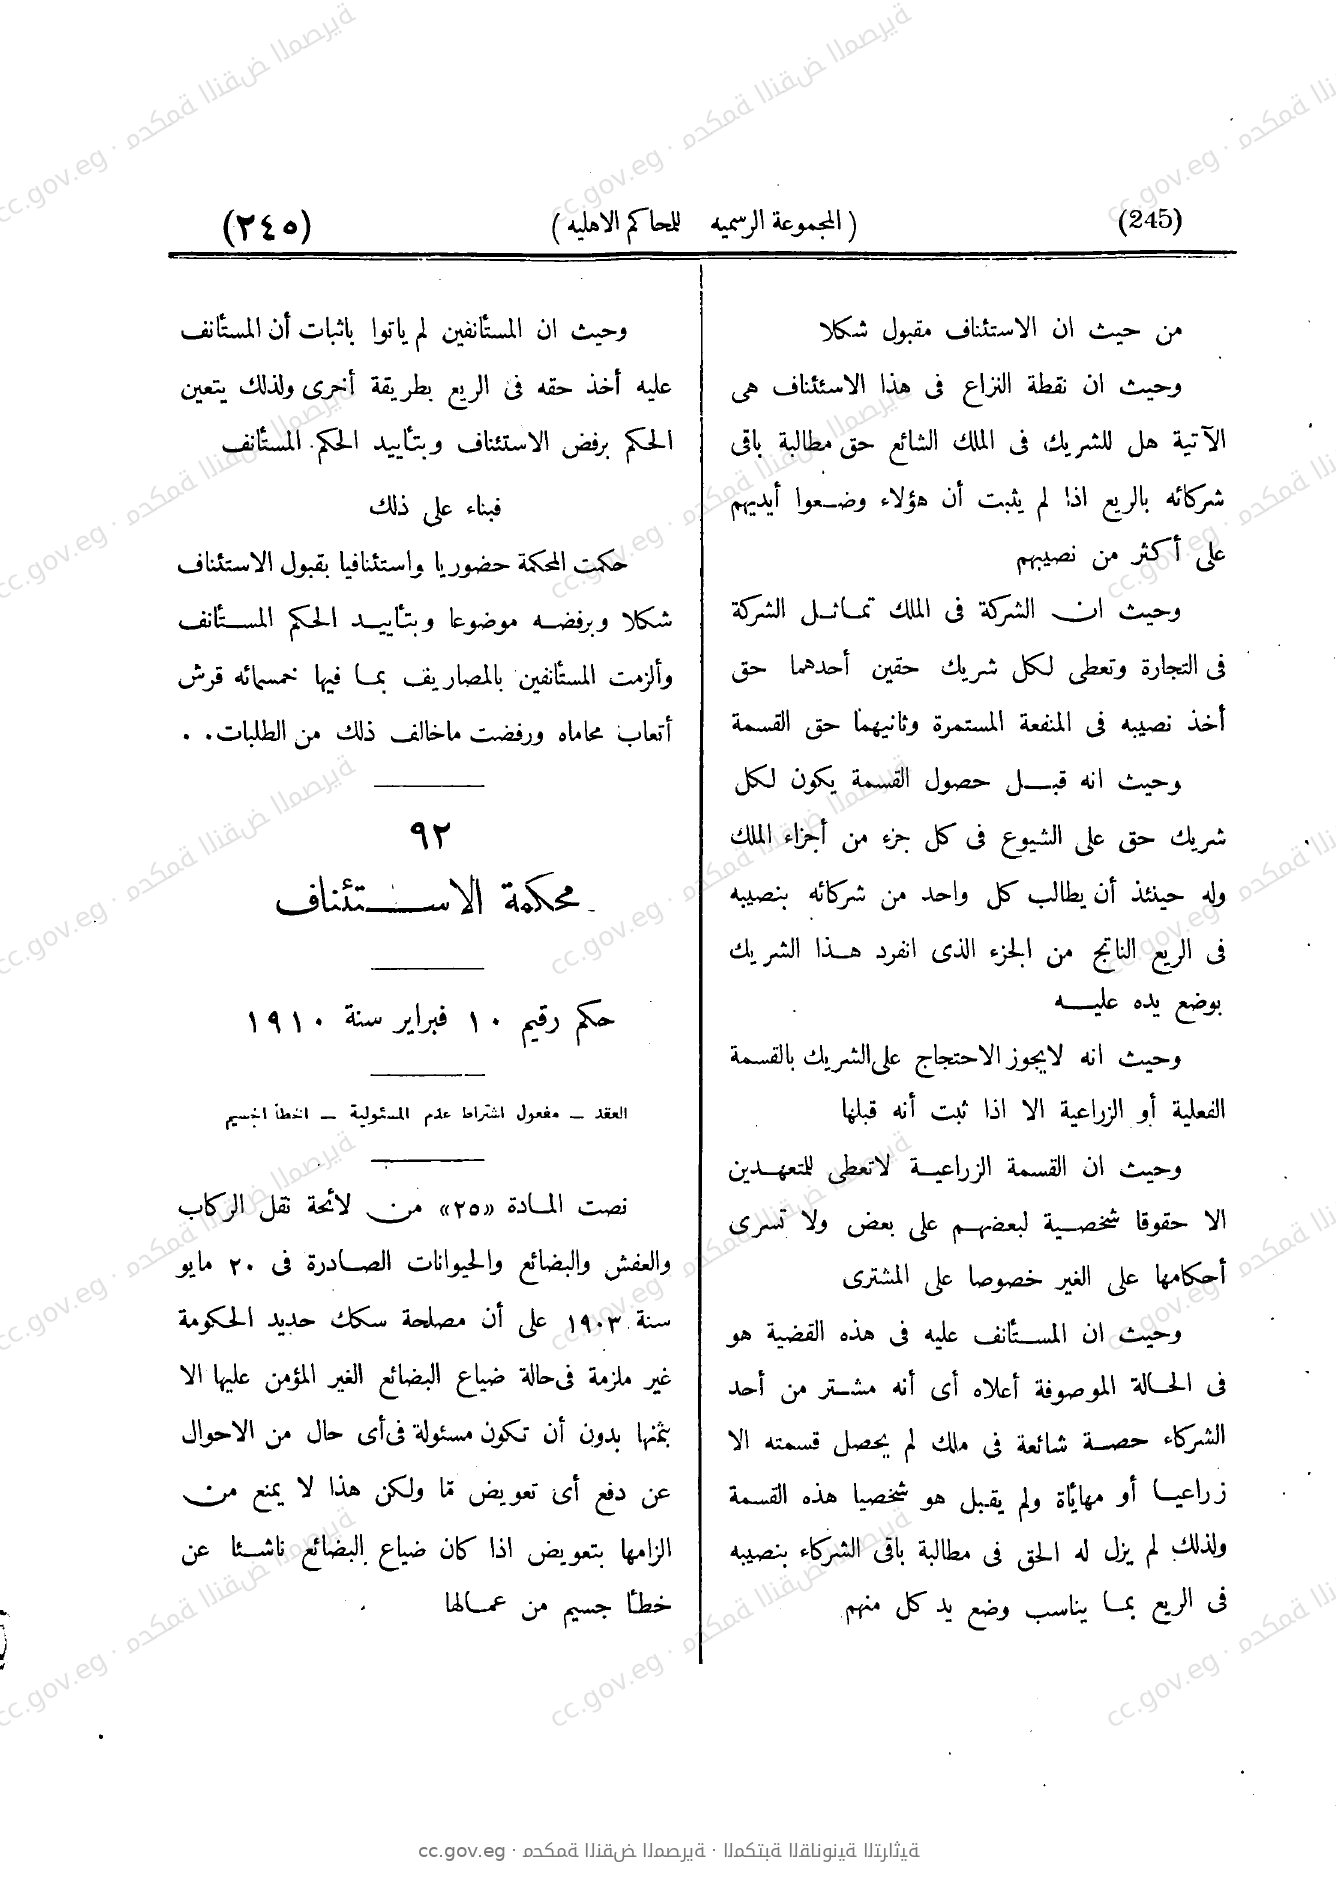 (245) ( المجموعة الرسميه للمحاكم الاهليه ) (٢٤٥)
من حيث ان الاستئناف مقبول شكلا
وحيث ان نقطة النزاع فى هذا الاستئناف هى
الآتية هل للشريك فى الملك الشائع حق مطالبة باقى
شركائه بالريع اذا لم يثبت أن هؤلاء وضعوا أيديهم
على أكثر من نصيبهم
وحيث ان الشركة فى الملك تماثل الشركة
فى التجارة وتعطى لكل شريك حقين أحدهما حق
أخذ نصيبه فى المنفعة المستمرة وثانيهما حق القسمة
وحيث انه قبل حصول القسمة يكون لكل
شريك حق على الشيوع فى كل جزء من أجزاء الملك
وله حينئذ أن يطالب كل واحد من شركائه بنصيبه
فى الريع الناتج من الجزء الذى انفرد هذا الشريك
بوضع يده عليه
وحيث انه لايجوز الاحتجاج على الشريك بالقسمة
الفعلية أو الزراعية الا اذا ثبت أنه قبلها
وحيث ان القسمة الزراعية لاتعطى للمتعهدين
الا حقوقا شخصية لبعضهم على بعض ولا تسرى
أحكامها على الغير خصوصا على المشترى
وحيث ان المستأنف عليه فى هذه القضية هو
فى الحالة الموصوفة أعلاه أى أنه مشتر من أحد
الشركاء حصة شائعة فى ملك لم يحصل قسمته الا
زراعيا أو مهايأة ولم يقبل هو شخصيا هذه القسمة
ولذلك لم يزل له الحق فى مطالبة باقى الشركاء بنصيبه
فى الريع بما يناسب وضع يد كل منهم
وحيث ان المستأنفين لم ياتوا باثبات أن المستأنف
عليه أخذ حقه فى الريع بطريقة أخرى ولذلك يتعين
الحكم برفض الاستئناف وبتأييد الحكم المستأنف
فبناء على ذلك
حكمت المحكمة حضوريا واستئنافيا بقبول الاستئناف
شكلا وبرفضه موضوعا وبتأييد الحكم المستأنف
وألزمت المستأنفين بالمصاريف بما فيها خمسمائه قرش
أتعاب محاماه ورفضت ماخالف ذلك من الطلبات..
٩٢
محكمة الاستئناف
حكم رقيم ١٠ فبراير سنة ١٩١٠
العقد – مفعول اشتراط عدم المسئولية – الخطأ الجسيم
نصت المادة «٢٥» من لائحة نقل الركاب
والعفش والبضائع والحيوانات الصادرة فى ٢٠ مايو
سنة ١٩٠٣ على أن مصلحة سكك حديد الحكومة
غير ملزمة فى حالة ضياع البضائع الغير المؤمن عليها الا
بثمنها بدون أن تكون مسئولة فى أى حال من الاحوال
عن دفع أى تعويض مّا ولكن هذا لا يمنع من
الزامها بتعويض اذا كان ضياع البضائع ناشئا عن
خطأ جسيم من عمالها
cc.gov.eg · محكمة النقض المصرية · المكتبة القانونية التراثية